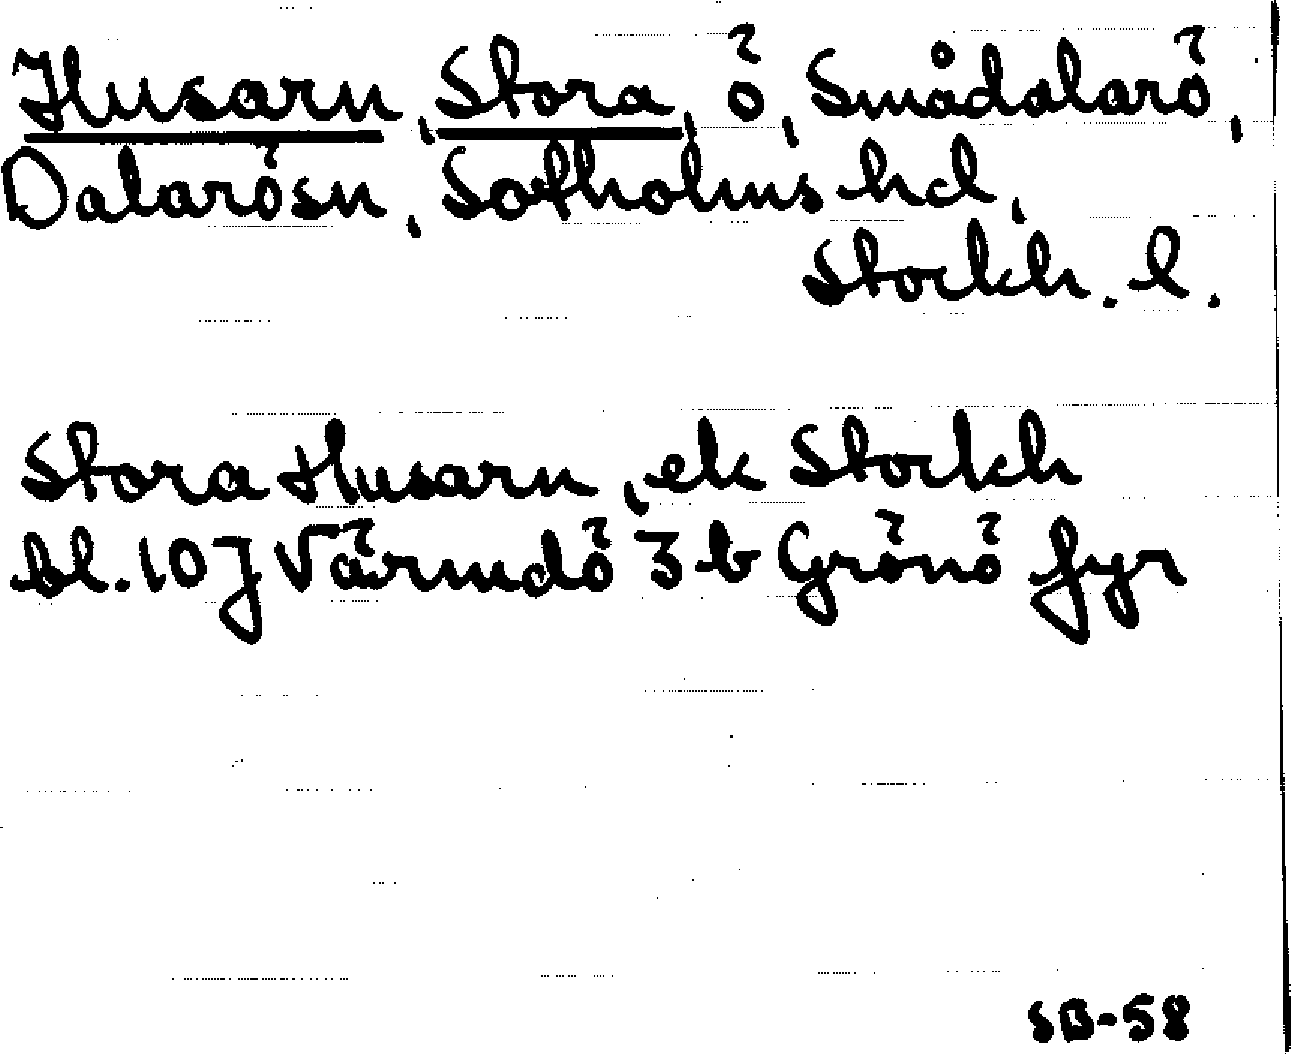 Husarn, Stora, ö, Smådalarö,
Dalarösn, Sotholms hd,
Stockh. l.
Stora Husarn, ek Stockh
bl. 10 J Värmdö 3 b Grönö fyr
SB-58